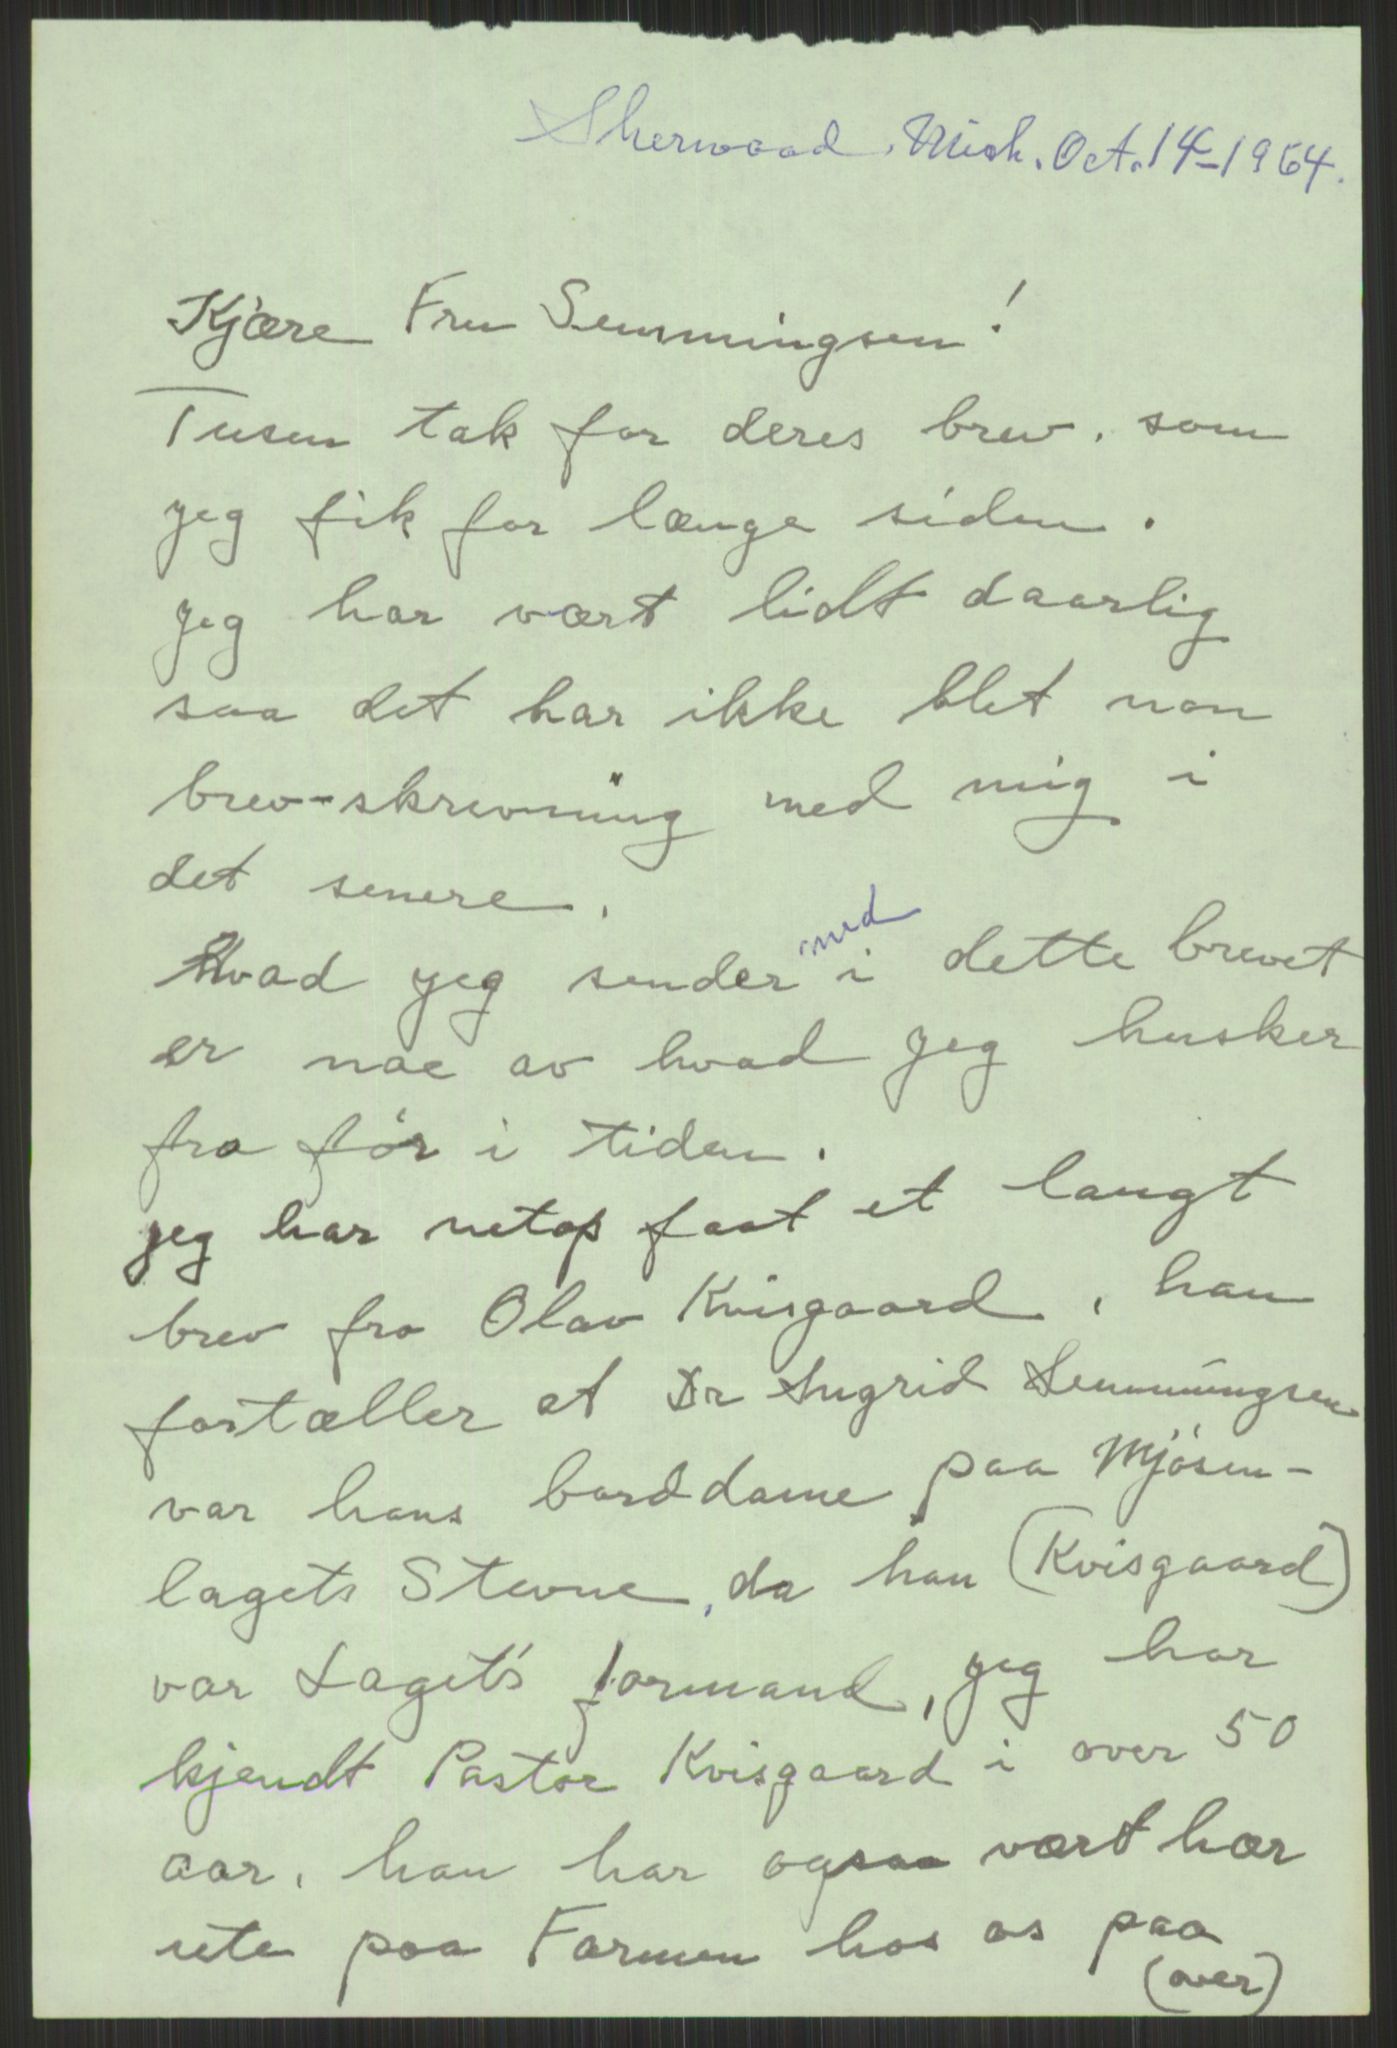 Sherwood, Mich. Oct. 14-1964.
Kjære Fru Semmingsen!
Tusen tak for deres brev, som
jeg fik for længe siden.
jeg har vært lidt daarlig
saa det har ikke blet non
brev-skrevning med mig i
det senere.
Hvad jeg sender med i dette brevet
er noe av hvad jeg husker
fra før i tiden.
jeg har netop faat et langt
brev fra Olav Kvisgaard, han
fortæller at Dr Ingrid Semmingsen
var hans borddame paa Mjøsen-
lagets Stevne, da han (Kvisgaard)
var Laget's formand, jeg har
kjendt Pastor Kvisgaard i over 50
aar, han har ogsaa vært hær
ute paa Farmen hos os paa
(over)